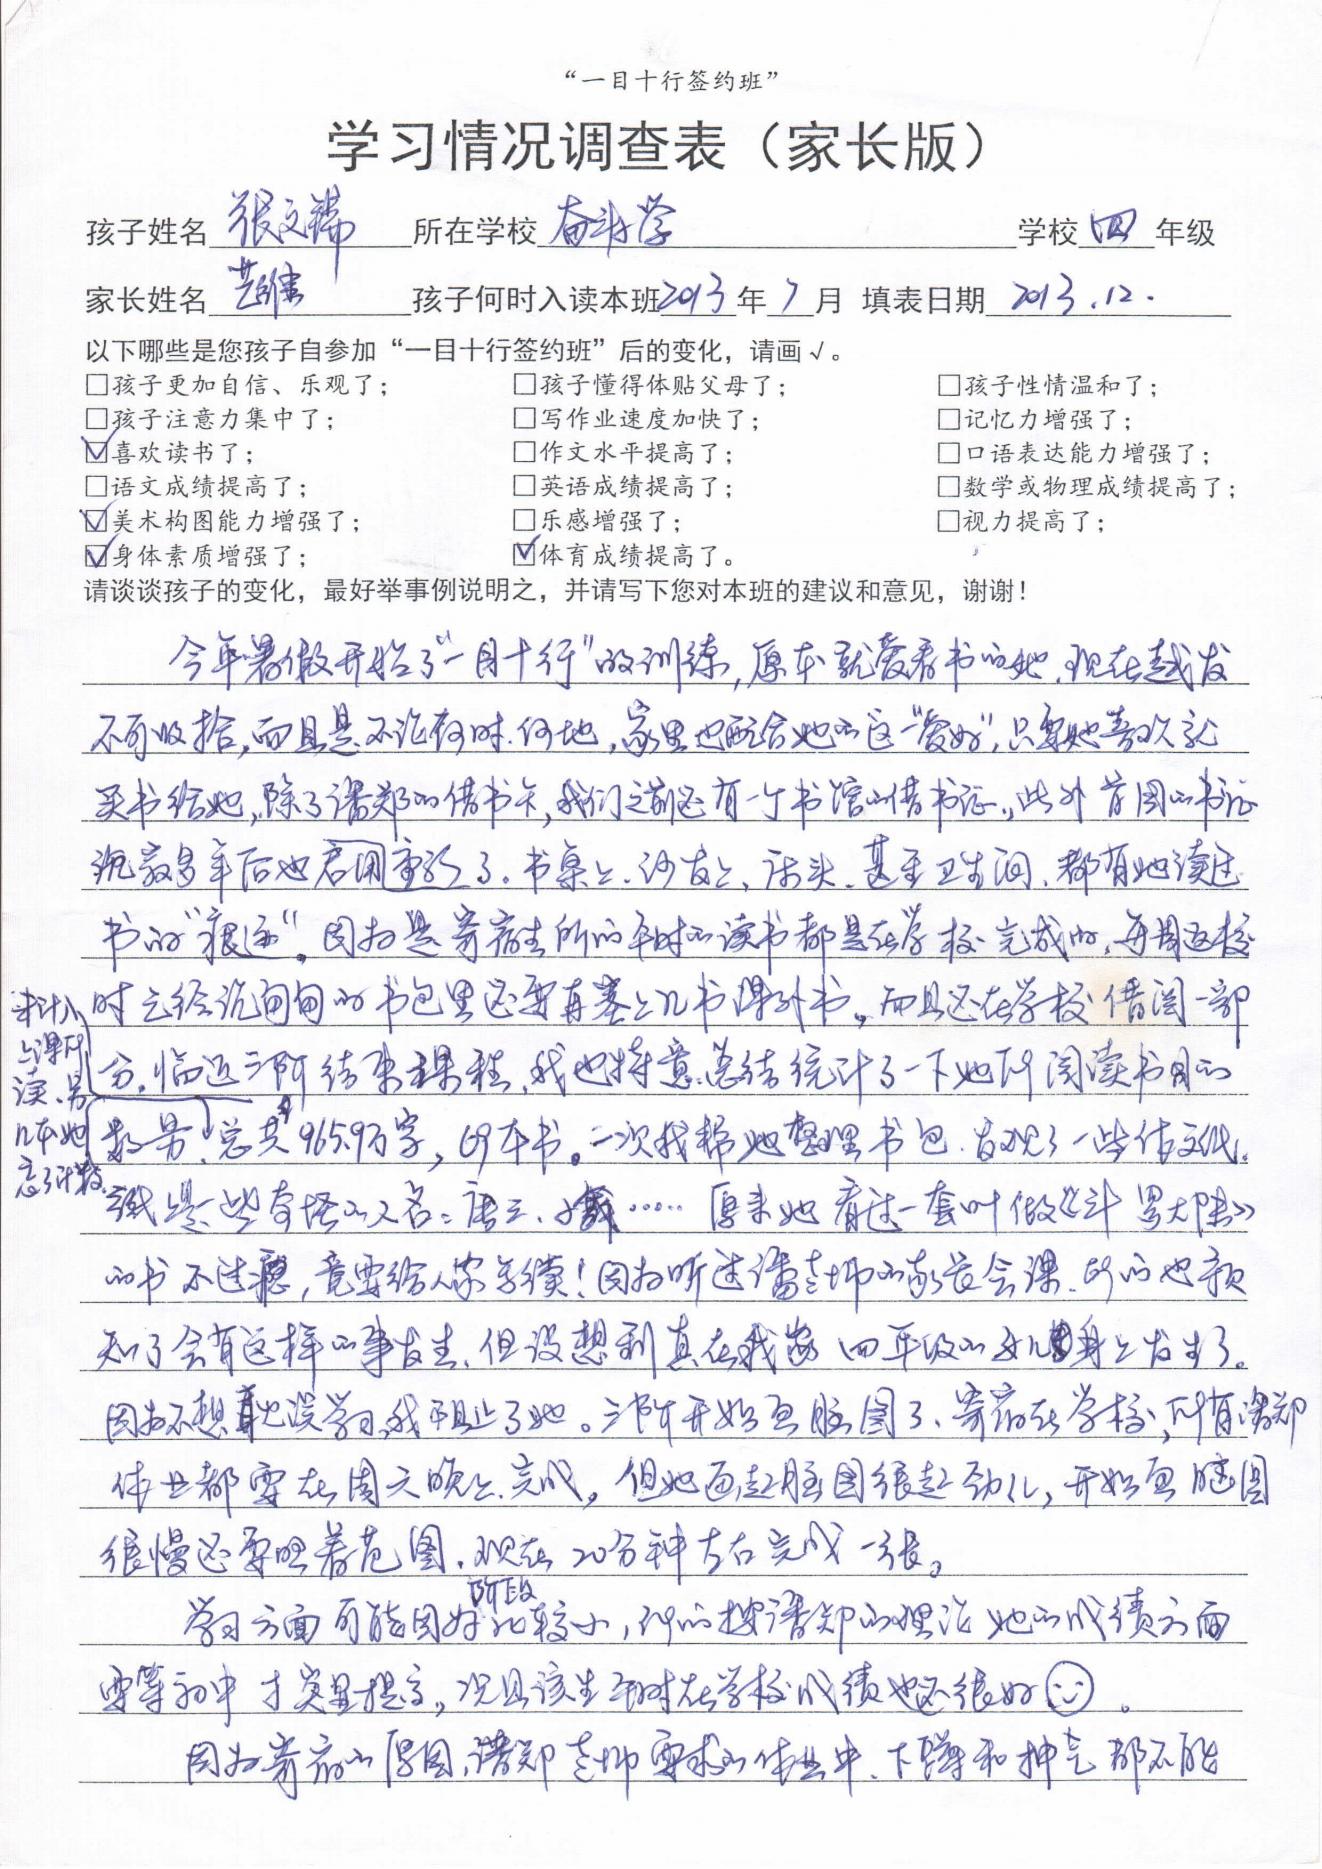 “一目十行签约班”
学习情况调查表（家长版）
孩子姓名 张文瑞 所在学校 奋斗小学 学校 四 年级
家长姓名 孩子何时入读本班 2013 年 7 月 填表日期 2013.12.
以下哪些是您孩子自参加“一目十行签约班”后的变化，请画√。
□孩子更加自信、乐观了； □孩子懂得体贴父母了； □孩子性情温和了；
□孩子注意力集中了； □写作业速度加快了； □记忆力增强了；
☑喜欢读书了； □作文水平提高了； □口语表达能力增强了；
□语文成绩提高了； □英语成绩提高了； □数学或物理成绩提高了；
☑美术构图能力增强了； □乐感增强了； □视力提高了；
☑身体素质增强了； ☑体育成绩提高了。
请谈谈孩子的变化，最好举事例说明之，并请写下您对本班的建议和意见，谢谢！
今年暑假开始了“一目十行”的训练，原本就爱看书的她，现在越发
不可收拾，而且是不论何时、何地，家里也配合她的这“爱好”，只要她喜欢就
买书给她，除了潘郑的借书卡，我们之前还有一个书馆的借书证，此外首图的书证
沉寂多年后也启用重新了。书桌上、沙发上、床头、甚至卫生间、都有她读过
书的“痕迹”。因为是寄宿生所以平时的读书都是在学校完成的，每周返校
时已经沉甸甸的书包里还要再塞上几书课外书。而且还在学校借阅一部
分。临近三阶结束课程，我也特意总结统计了一下她所阅读书目的
数量，总共965.9万字，69本书。一次我帮她整理书包，发现了一些作文纸，
未计入
上课所
读、另
几本她
忘了计数
都是一些奇怪的人名：唐三、……原来她看过一套叫做《斗罗大陆》
的书不过瘾，竟要给人家写续！因为听过潘老师的家长会课，所以也预
知了会有这样的事发生，但没想到真在我家四年级的女儿身上发生了。
因为不想耽误学习，我阻止了她。三阶开始画脑图了、寄宿在学校，所有潘郑
作业都要在周六晚上完成，但她画起脑图很起劲儿，开始画脑图
很慢还要照着范图，现在20分钟左右完成一张。
学习方面可能因好阶段比较小，所以按潘郑的理论她的成绩方面
要等初中才突显提高，况且该生平时在学校成绩也还很好。
因为寄宿的原因，潘郑老师要求的作业中，下蹲和抻筋都不能